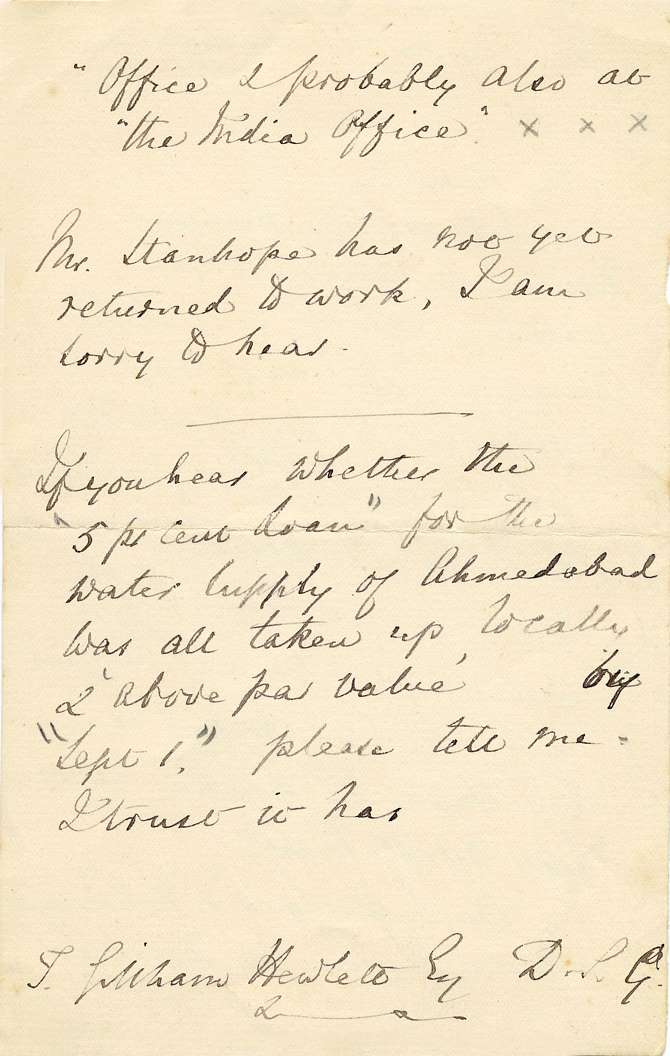 " Office & probably also at
" the India Office". x x x
Mr. Stanhope has not yet
returned to work, I am
sorry to hear.
If you hear whether the
"5 pr cent loan" for the
water supply of Ahmedabad
was all taken up locally
& 'above par value' by
"Sept 1," please tell me.
I trust it has
T. Gillham Hewlett Esq D.S.G.